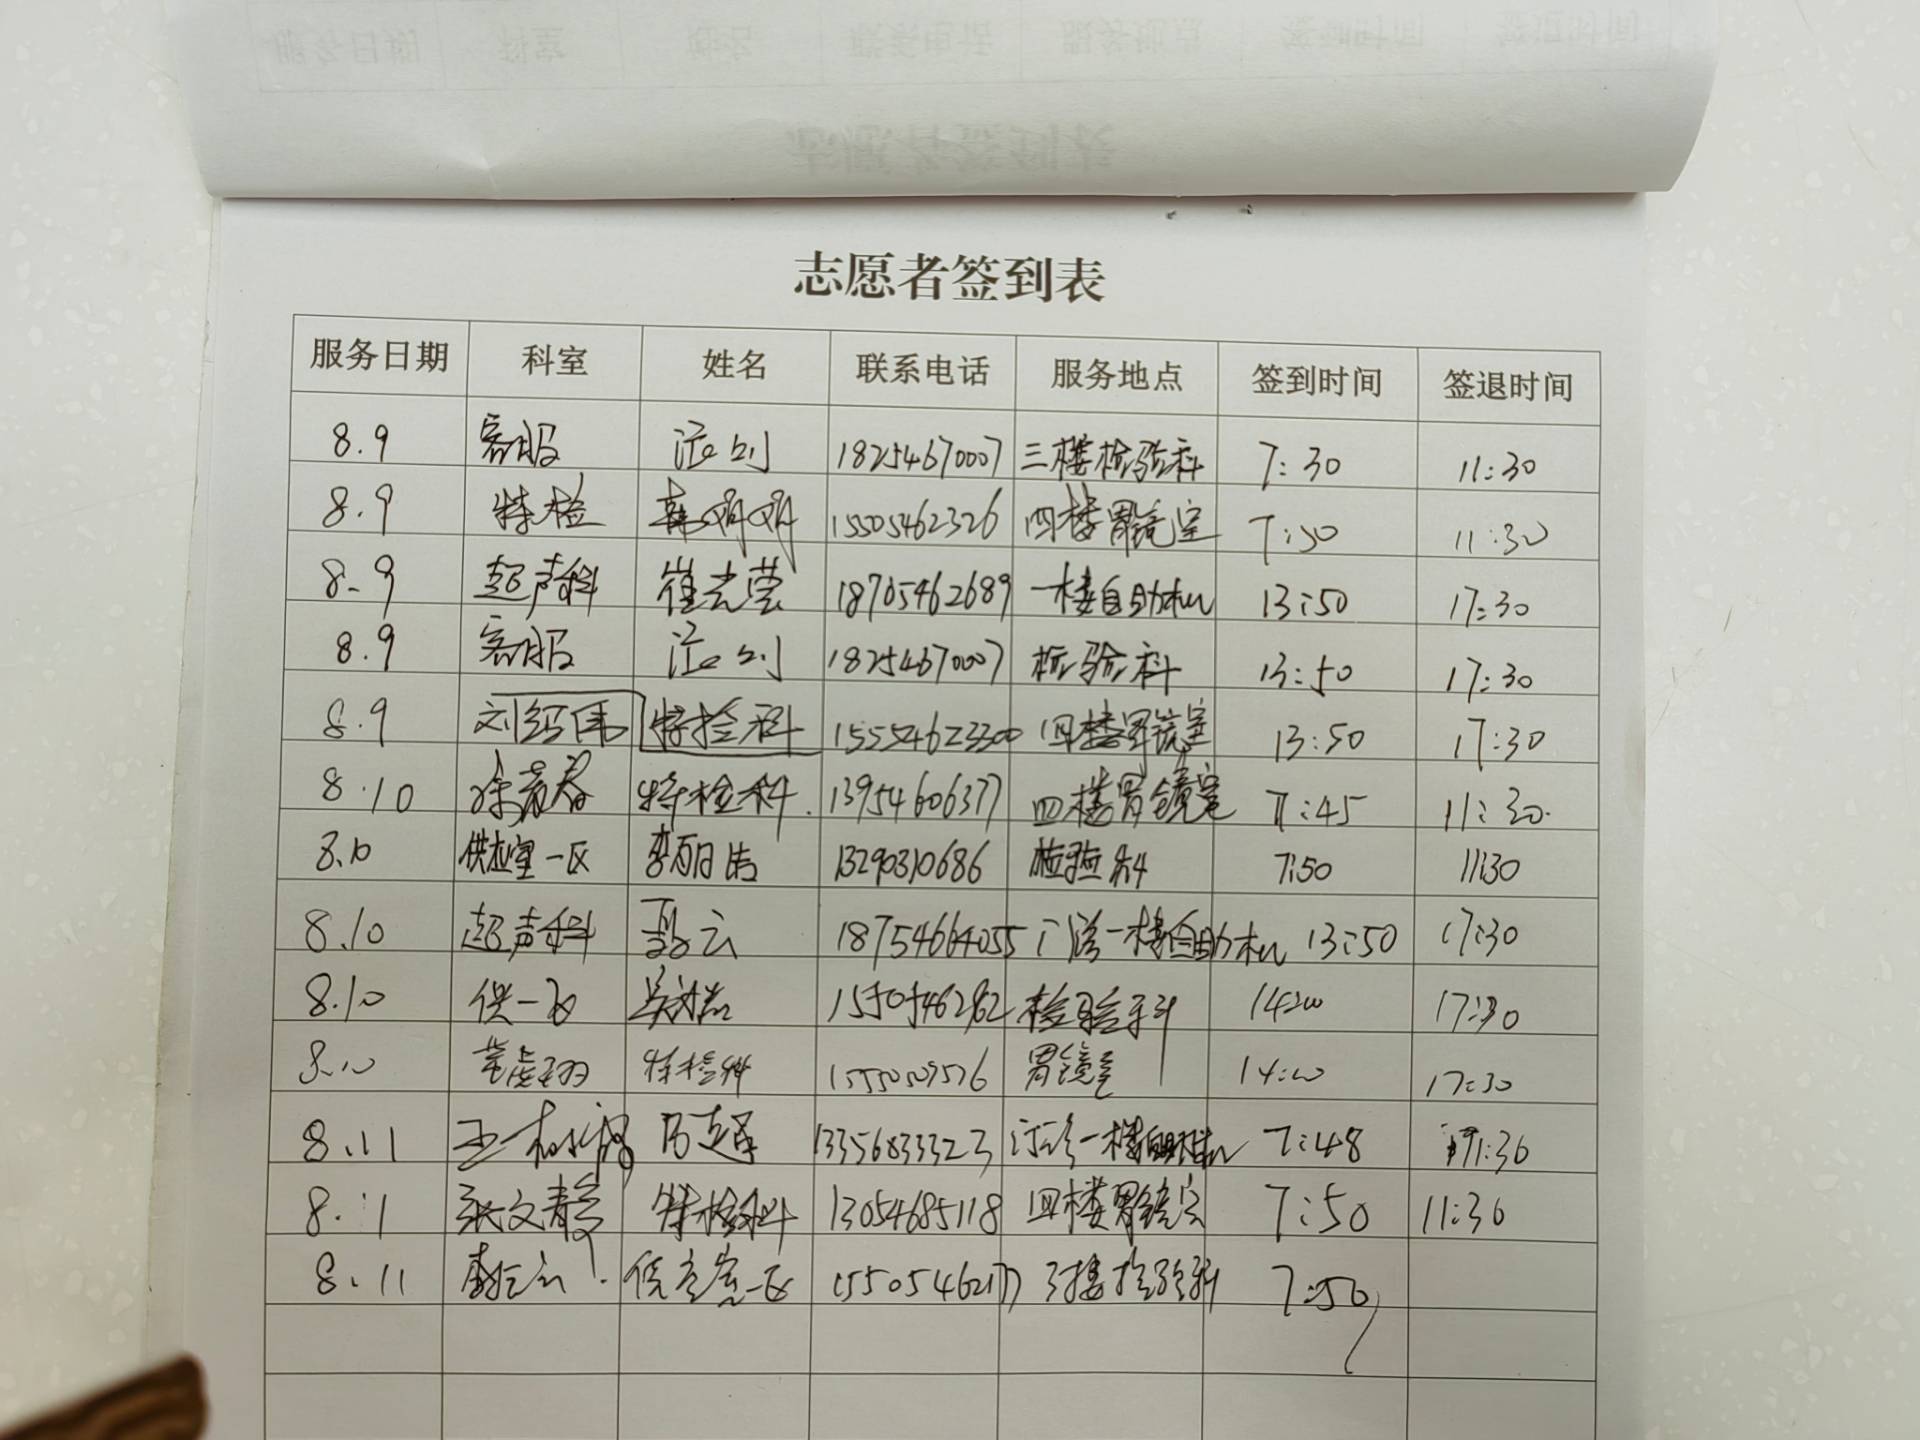 志愿者签到表
服务日期 科室 姓名 联系电话 服务地点 签到时间 签退时间
8.9 客服 18254670007 三楼检验科 7:30 11:30
8.9 特检 韩娟娟 15505462326 四楼胃镜室 7:50 11:30
8.9 超声科 崔光莹 18705462689 一楼自助机 13:50 17:30
8.9 客服 18254670007 检验科 13:50 17:30
8.9 刘红伟 特检科 15554623300 四楼胃镜室 13:50 17:30
8.10 特检科 13954606377 四楼胃镜室 7:45 11:30
8.10 供应室一区 李丽洁 13290310686 检验科 7:50 11:30
8.10 超声科 聂云 18754664055 门诊一楼自助机 13:50 17:30
8.10 供一区 15505462162 检验科 14:00 17:30
8.10 特检科 胃镜室 14:00 17:30
8.11 13356833323 门诊一楼自助机 7:48 11:30
8.11 张文静 特检科 13054685118 四楼胃镜室 7:50 11:30
8.11 供应室一区 15505462177 三楼检验科 7:50